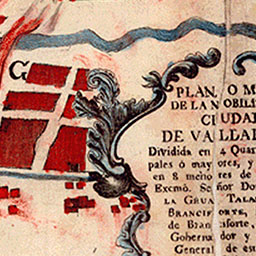 G
PLAN, O M
DE LA NOBILI
CIUDA
DE VALLA
Dividida en 4 Quar
pales ó mayores, y
en 8 menores de
Excmô. Señor Do
LA GRUA TALA
BRANCIFORTE,
de Branciforte,
Gobernador y
General de est